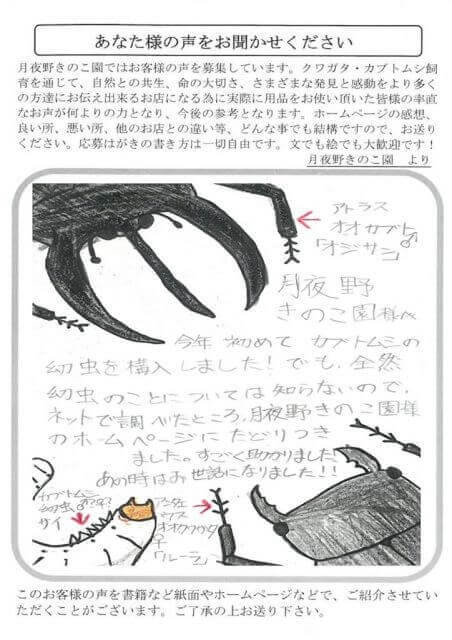 あなた様の声をお聞かせください
月夜野きのこ園ではお客様の声を募集しています。クワガタ・カブトムシ飼
育を通じて、自然との共生、命の大切さ、さまざまな発見と感動をより多く
の方達にお伝え出来るお店になる為に実際に用品をお使い頂いた皆様の率直
なお声が何よりの力となり、今後の参考となります。ホームページの感想、
良い所、悪い所、他のお店との違い等、どんな事でも結構ですので、お送り
ください。応募はがきの書き方は一切自由です。文でも絵でも大歓迎です！
月夜野きのこ園　より
アトラス
オオカブト♂
「オジサン」
月夜野
きのこ園様へ
今年 初めて カブトムシの
幼虫を構入しました！でも、全然
幼虫のことについては知らないので、
ネットで調べたところ、月夜野きのこ園様
のホームページにたどりつき
ました。すごく助かりました！
あの時はお世話になりました！！
カブトムシ
幼虫
サイ
オオクワガタ
♀
「ルーシー」
このお客様の声を書籍など紙面やホームページなどで、ご紹介させてい
ただくことがございます。ご了承の上お送り下さい。